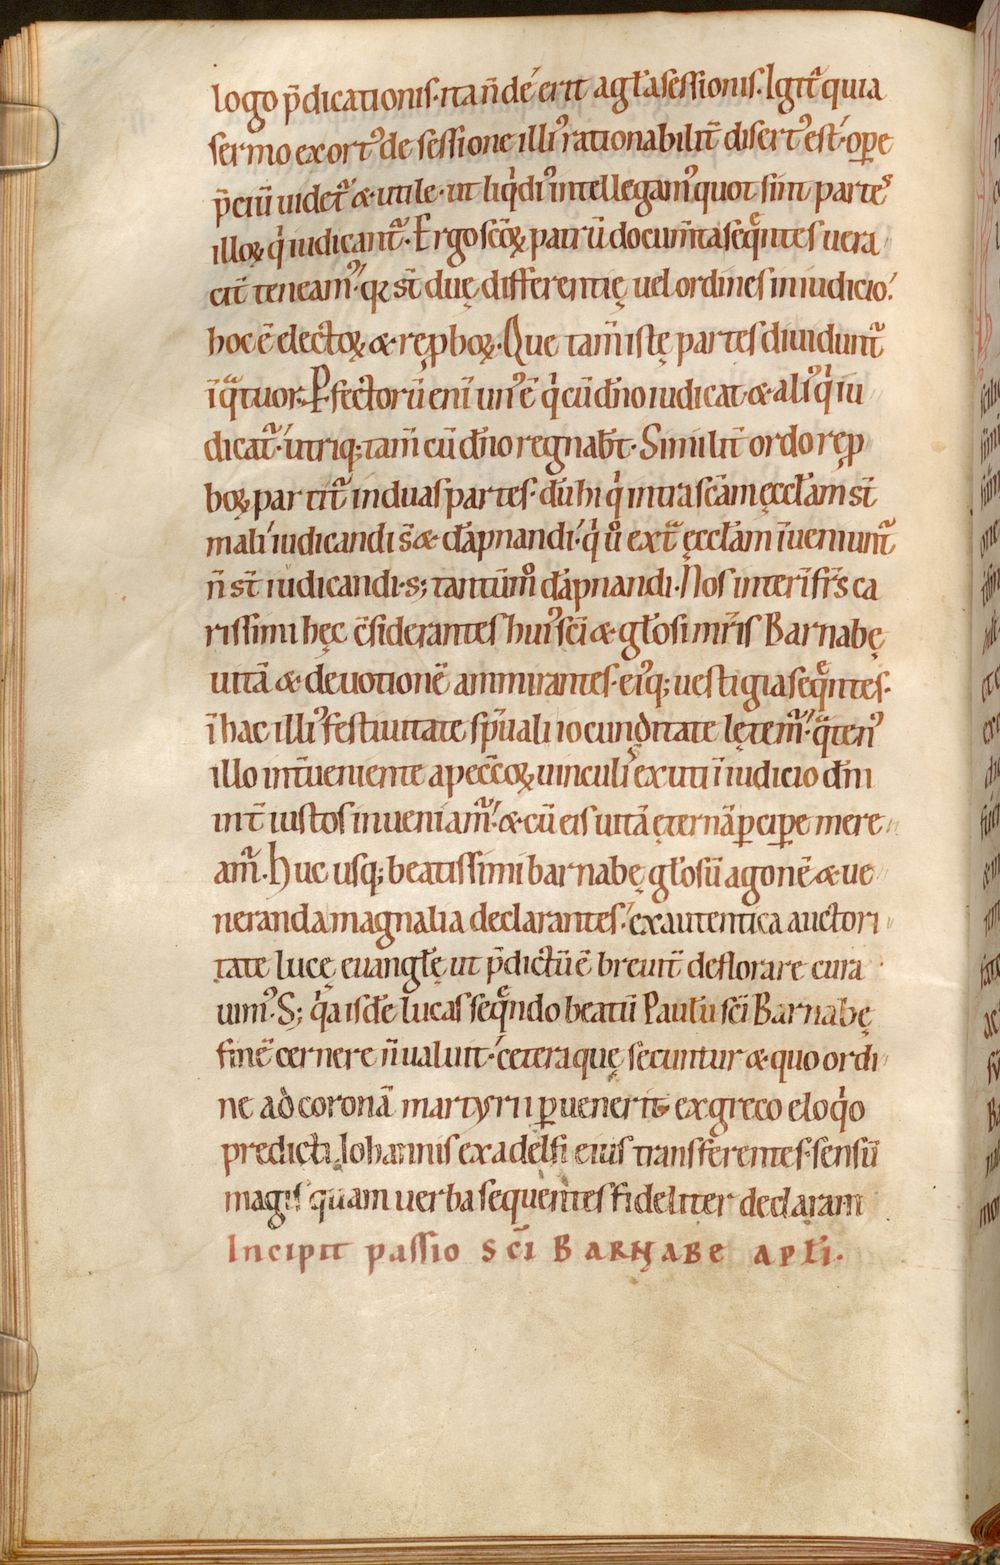 logo p̄dicationis· ita n̄ de᷑ erit a gl̃a sessionis. Igit᷑ quia
sermo exortꝰ de sessione illiꝰ rationabilit̄ disertꝰ est· oꝑe
p̄ciū uidet᷑ & utile· ut liqͥdiꝰ intellegamꝰ quot sint partes
illoꝝ qͥ iudicant᷑. Ergo sc̄oꝝ patrū docum̄ta seq̄ntes uera
cit̄ teneamꝰ· q̄ s̄t duę differentię uel ordines in iudicio·
hoc ē electoꝝ & rep̱boꝝ. Que tam̄ istę partes diuidunt᷑
ī q̄tuor. P̱fectorū eni unꝰ ē qͥ cū dn̄o iudicat & aliꝰ qͥ iu
dicat᷑· utriq; tam̄ cū dn̄o regnabt̄. Similit̄ ordo rep̱
boꝝ partit᷑ in duas partes· dū hi qͥ intra sc̄am ęccl̃am s̄t
mali iudicandi s̄ & dāpnandi· qͥ ů ext᷑ ęccl̃am īueniunt᷑
n̄ s̄t iudicandi· s; tantūmͦ dāpnandi. Nos interī fr̄s ca
rissimi hęc c̄siderantes huiꝰ sc̄i & gl̃osi mr̄is Barnabę
uitā & deuotionē ammirantes· eiꝰq; uestigia seq̄ntes·
ī hac illiꝰ festiuitate sp̄uali iocunditate lętem᷑· q̄tenꝰ
illo int̄ueniente a pecc̄oꝝ uinculis exuti ī iudicio dn̄i
int̄ iustos inueniam᷑· & cū eis uitā ęternā ꝑciꝑe mere
am᷑. Huc usq; beatissimi barnabę gl̃osū agonē & ue
neranda magnalia declarantes· ex autentica auctori
tate lucę euangl̃ę ut p̄dictū ē breuit̄ deflorare cura
uimꝰ. S; q̄a isdē lucas seq̄ndo beatū Paulū sc̄i Barnabę
finē cernere n̄ ualuit· cetera quę secuntur & quo ordi
ne ad coronā martyrii ꝑuenerit· ex greco eloq̄o
predicti Iohannis exadelfi eius transferentes· sensū
magis quam uerba sequentes fideliter declaram
Incipit passio sc̄i Barnabe apl̃i.